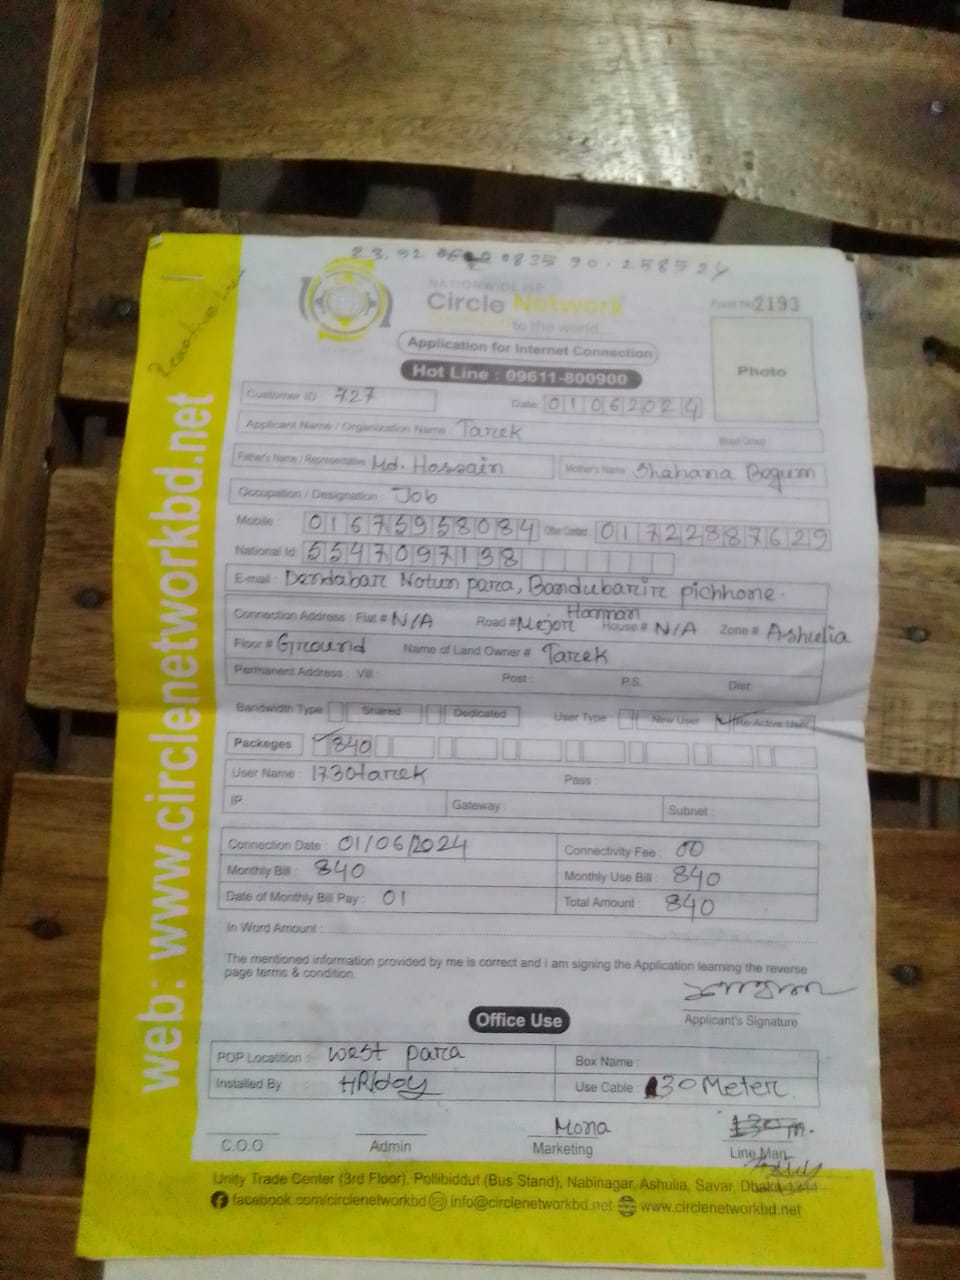 23.92 0835 90.258524
Reactive
NATIONWIDE ISP
Circle Network
to the world...
Form No 2193
Application for Internet Connection
Hot Line : 09611-800900
Photo
Customer ID : 727
Date: 01062024
Applicant Name / Organization Name : Tarek
Blood Group
Father's Name / Representative : Md. Hossain
Mother's Name : Shahana Begum
Occupation / Designation : Job
Mobile : 01675958084 Other Contact : 01722887629
National Id: 5547097138
E-mail : Dendabar Notun para, Bandubarir pichhone.
Connection Address : Flat # N/A Road # Mejor Hannan House # N/A Zone # Ashulia
Floor # Ground Name of Land Owner # Tarek
Permanent Address : Vill : Post : P.S. Dist:
Bandwidth Type Shared Dedicated User Type New User Re-Active User
Packeges 840
User Name : 1730tarek Pass :
IP : Gateway : Subnet :
Connection Date : 01/06/2024 Connectivity Fee : 00
Monthly Bill : 840 Monthly Use Bill : 840
Date of Monthly Bill Pay : 01 Total Amount : 840
In Word Amount :
The mentioned information provided by me is correct and I am signing the Application learning the reverse
page terms & condition.
Applicant's Signature
Office Use
POP Locatition : West para Box Name :
Installed By HRIdoy Use Cable : 130 Meter.
130 m.
Mona
C.O.O Admin Marketing Line Man
Unity Trade Center (3rd Floor), Pollibiddut (Bus Stand), Nabinagar, Ashulia, Savar, Dhaka-1344
facebook.com/circlenetworkbd info@circlenetworkbd.net www.circlenetworkbd.net
web: www.circlenetworkbd.net